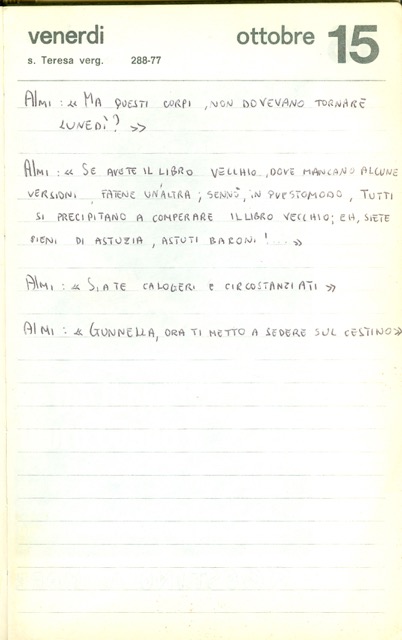 venerdi ottobre 15
s. Teresa verg. 288-77
Almi : « MA QUESTI CORPI , NON DOVEVANO TORNARE
LUNEDÌ? »
Almi : « SE AVETE IL LIBRO VECCHIO , DOVE MANCANO ALCUNE
VERSIONI , FATENE UN'ALTRA ; SENNÒ, IN QUESTOMODO , TUTTI
SI PRECIPITANO A COMPERARE IL LIBRO VECCHIO ; EH, SIETE
PIENI DI ASTUZIA , ASTUTI BARONI ! ... »
Almi : « SIATE CALOGERI E CIRCOSTANZIATI »
Almi : « GUNNELLA, ORA TI METTO A SEDERE SUL CESTINO »